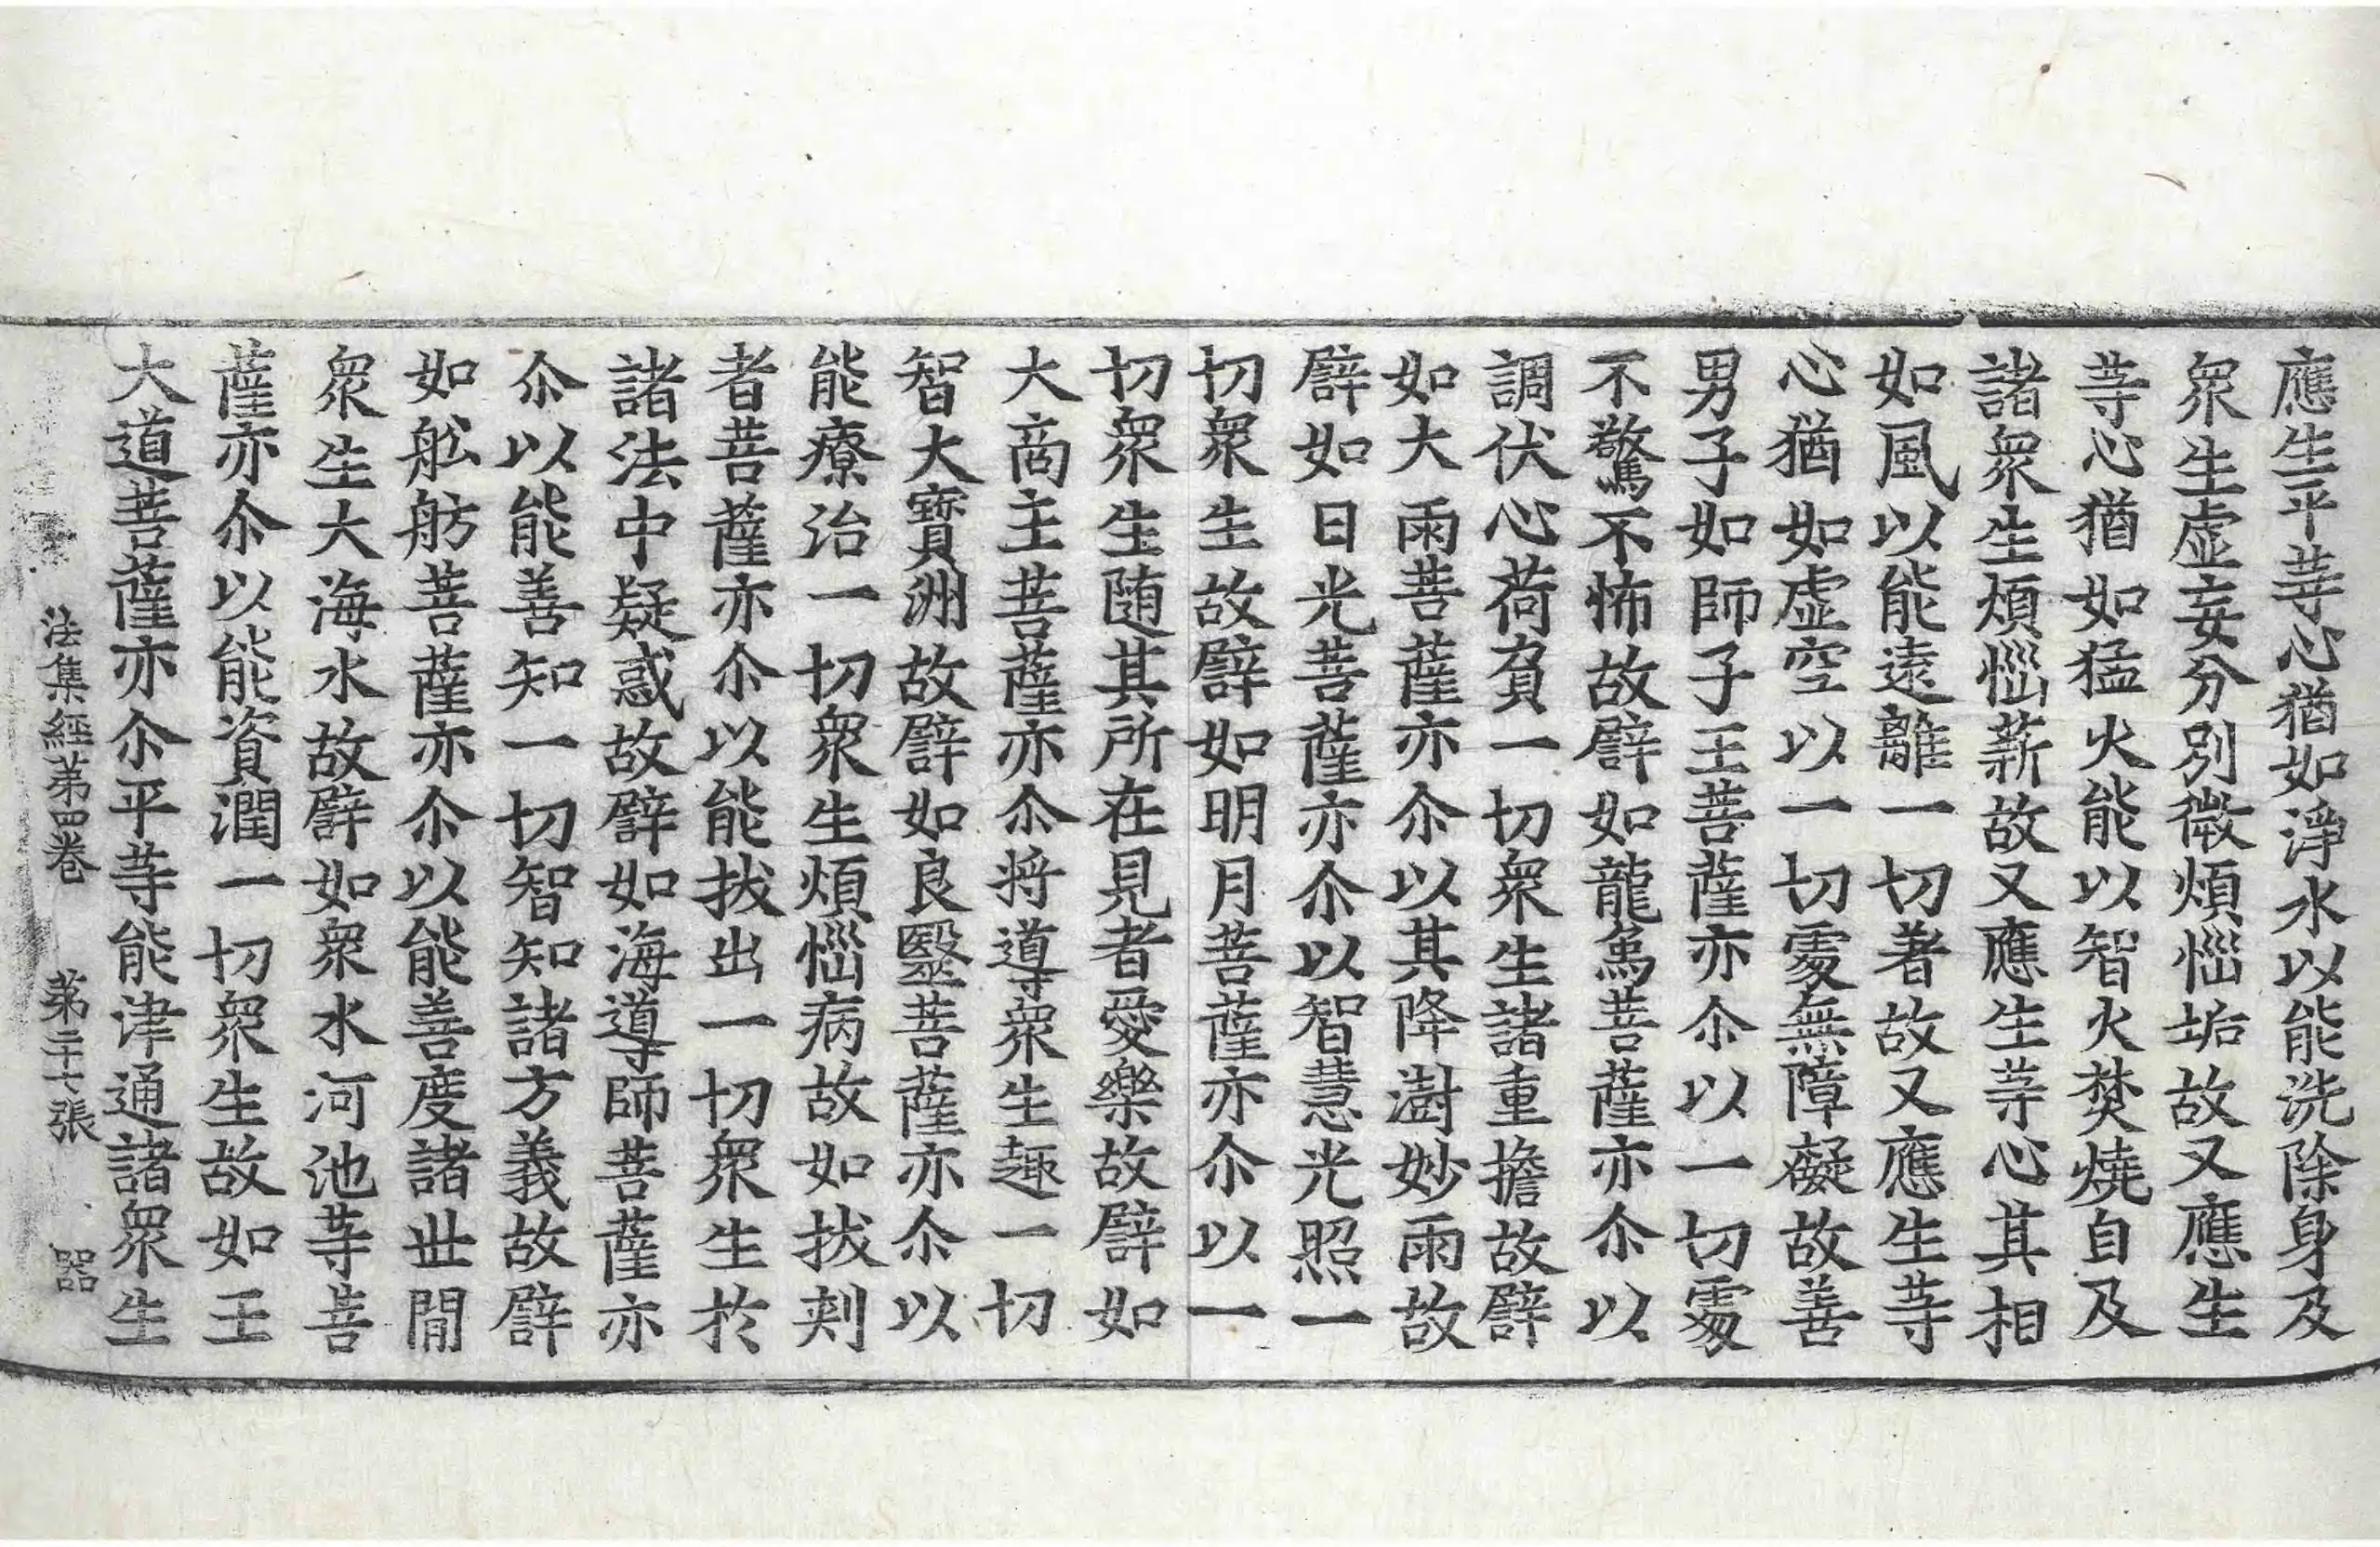 應生平䓁心猶如淨水以能洗除身及
衆生虛妄分別微煩惱垢故又應生
䓁心猶如猛火能以智火焚燒自及
諸衆生煩惱薪故又應生䓁心其相
如風以能遠離一切著故又應生䓁
心猶如虛空以一切䖏無障礙故善
男子如師子王菩薩亦尒以一切䖏
不驚不怖故譬如龍爲菩薩亦尒以
調伏心荷負一切衆生諸重擔故譬
如大雨菩薩亦尒以其降澍妙雨故
譬如日光菩薩亦尒以智慧光照一
切衆生故譬如明月菩薩亦尒以一
切衆生随其所在見者愛樂故譬如
大商主菩薩亦尒將導衆生趣一切
智大寶洲故譬如良毉菩薩亦尒以
能療治一切衆生煩惱病故如拔刾
者菩薩亦尒以能拔出一切衆生於
諸法中疑惑故譬如海導師菩薩亦
尒以能善知一切智知諸方義故譬
如舩舫菩薩亦尒以能善度諸世閒
衆生大海水故譬如衆水河池䓁菩
薩亦尒以能資潤一切衆生故如王
大道菩薩亦尒平䓁能津通諸衆生
法集經苐四卷 苐二十七張 器